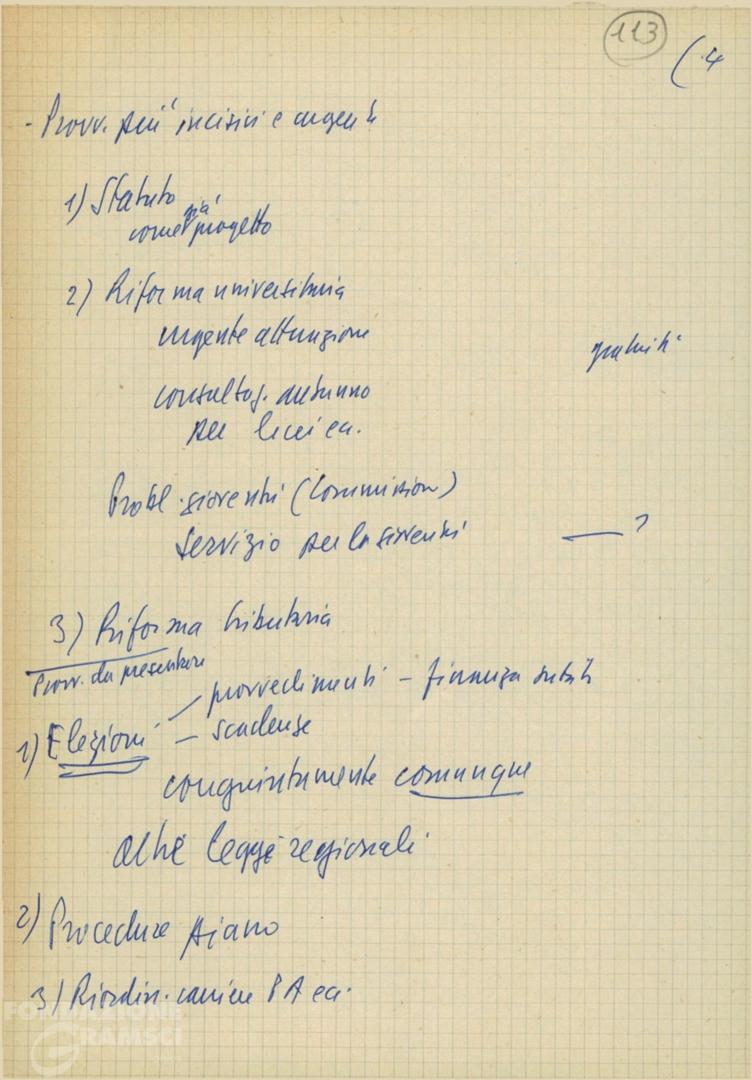 113
(4
- Provv. più incisivi e urgenti
1) Statuto
già
come progetto
2) Riforma universitaria
urgente attuazione
gratuiti
consultaz. autunno
per licei ecc.
Probl. gioventù (Commission)
Servizio per la gioventù
— ?
3) Riforma tributaria
Provv. da presentare
provvedimenti - finanza
1) Elezioni
- scadenze
congiuntamente comunque
altre leggi regionali
2) Procedure piano
3) Riordin. carriere P A ec.
FONDAZIONE
GRAMSCI